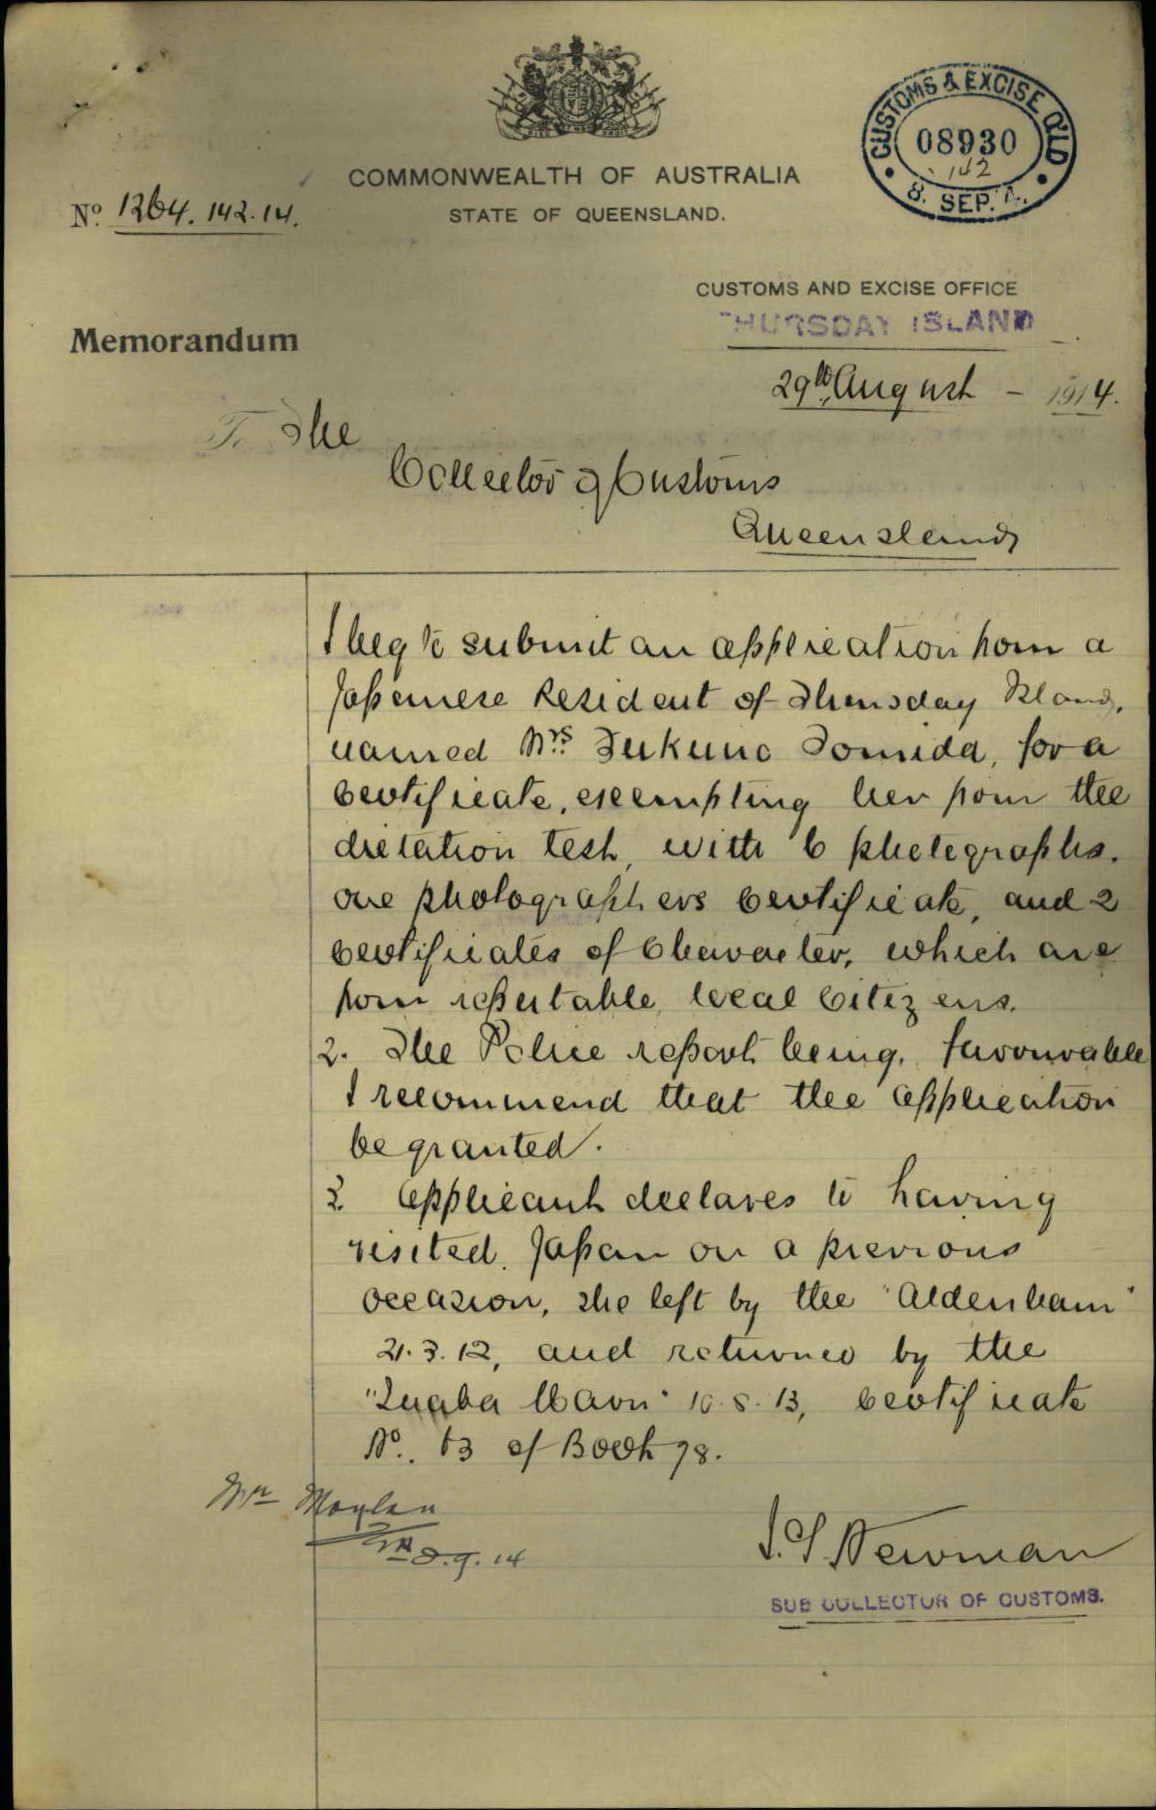 CUSTOMS & EXCISE QLD
08930
142
8. SEP.
COMMONWEALTH OF AUSTRALIA
STATE OF QUEENSLAND.
No. 1264.142.14.
CUSTOMS AND EXCISE OFFICE
THURSDAY ISLAND
Memorandum
29th August - 1914.
To The
Collector of Customs
Queensland
I beg to submit an application from a
Japanese Resident of Thursday Island,
named Mrs. Fukuno Tomida, for a
Certificate, exempting her from the
dictation test, with 6 photographs.
one photographers Certificate, and 2
Certificates of Character, which are
from reputable local Citizens.
2. The Police report being, favourable
I recommend that the application
be granted.
3. Applicant declares to having
visited Japan on a previous
occasion, she left by the "Aldenham"
21.3.12, and returned by the
Maru" 10.8.13, Certificate
No. 63 of Book 78.
Mr Moylan
8.9.14
Newman
SUB COLLECTOR OF CUSTOMS.